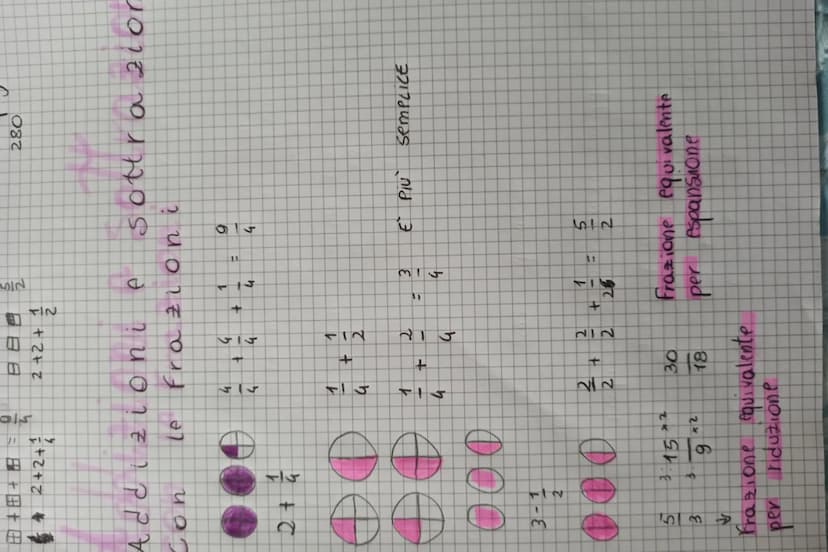 280
+ + = 9/4 5/2
2+2+1/4 2+2+1/2
Addizioni e sottrazion
con le frazioni
4/4 + 4/4 + 1/4 = 9/4
2 + 1/4
1/4 + 1/2
1/4 + 2/4 = 3/4 È PIÙ SEMPLICE
3 - 1/2
2/2 + 2/2 + 1/2 = 5/2
5/3 :3 :3 15/9 ×2 ×2 30/18 Frazione equivalente
per espansione
↓
Frazione equivalente
per riduzione